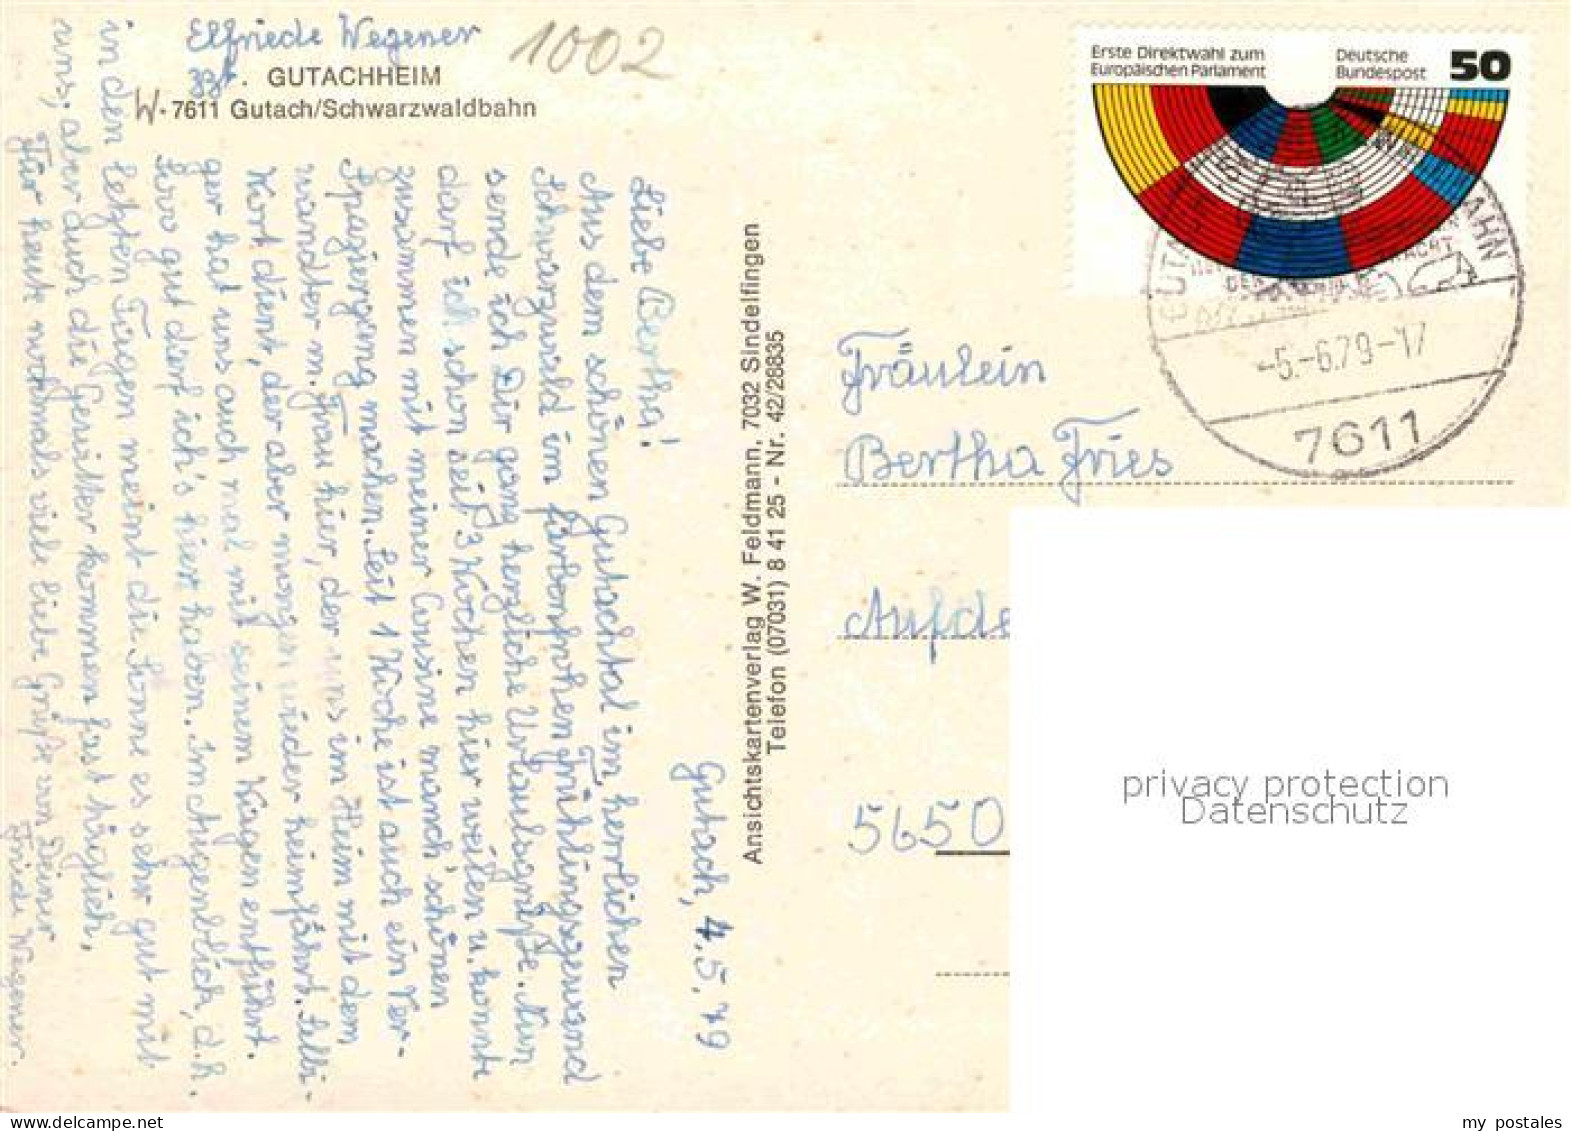 Elfriede Wegener
1002
zzt. GUTACHHEIM
W-7611 Gutach/Schwarzwaldbahn
Gutach, 4.5.79
Liebe Bertha!
Aus dem schönen Gutachtal im herrlichen
Schwarzwald im farbenfrohen Frühlingsgewand
sende ich Dir ganz herzliche Urlaubsgrüße. Nun
darf ich schon seit 3 Wochen hier weilen u. konnte
zusammen mit meiner Cousine manch' schönen
Spaziergang machen. Seit 1 Woche ist auch ein Ver-
wandter m. Frau hier, der uns im Heim mit dem
Wort dient, der aber morgen wieder heimfährt. Selbi-
ger hat uns auch mal mit seinem Wagen entführt.
Sooo gut darf ich's hier haben. Im Augenblick, d.h.
in den letzten Tagen meint die Sonne es sehr gut mit
uns, aber auch die Gewitter kommen fast täglich.
Für heut nochmals viele liebe Grüße von Deiner
Friede Wegener.
Ansichtskartenverlag W. Feldmann, 7032 Sindelfingen
Telefon (07031) 8 41 25 - Nr. 42/28835
Erste Direktwahl zum
Europäischen Parlament
Deutsche
Bundespost
50
-5.-6.79-17
7611
Fräulein
Bertha Fries
Auf de
5650
privacy protection
Datenschutz
my postales